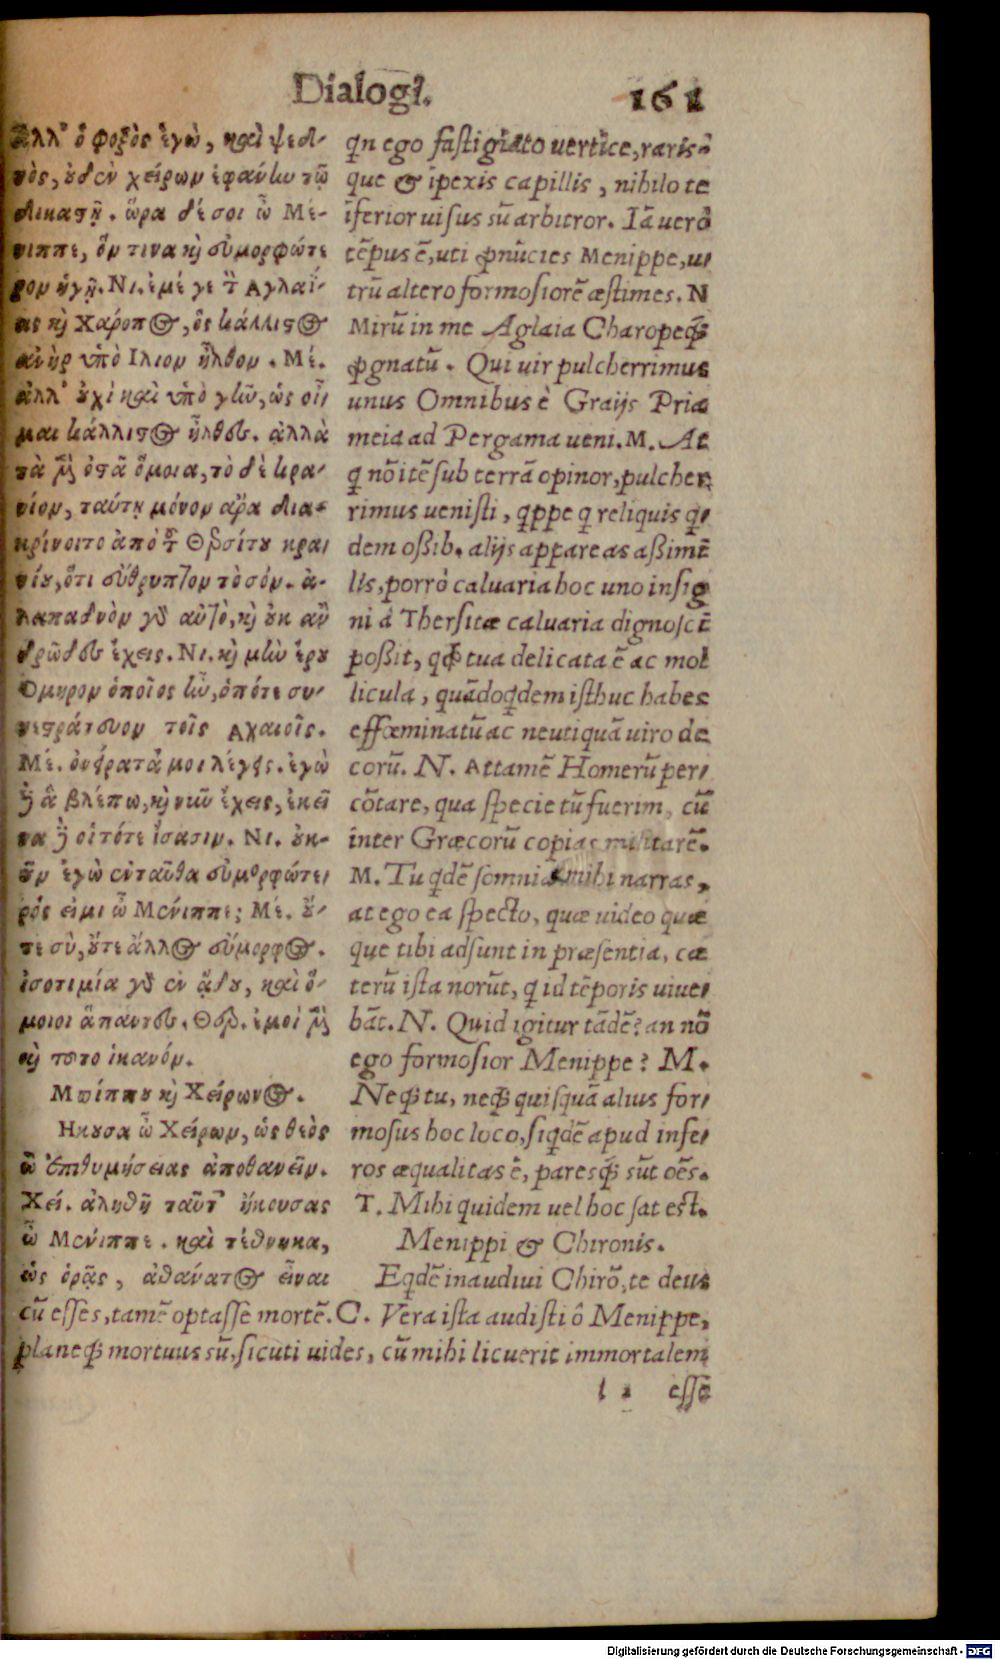 Dialogi. 161
ἀλλ' ὁ φοξὸς ἐγὼ, καὶ ψεδ-
νὸς, ουδεν χείρων ἐφάνην τῷ
δικαστῇ. ὥρα δέ σοι ὦ Μέ-
νιππε, ὅν τινα κỳ εὐμορφότε
ρον ἡγῇ. Νι. ἐμέ γε τ̃ Αγλαΐ-
ας κỳ Χαροπος, ὃς κάλλιστος
ἀνὴρ ὑπὸ Ιλιον ἦλθον. Μέ.
ἀλλ' ουχὶ καὶ ὑπὸ γῆν, ὡς οἶ
μαι κάλλιστος ἦλθες. ἀλλὰ
τὰ μ̃ ὀστᾶ ὅμοια, τὸ δὲ κρα-
νίον, ταύτῃ μόνον ἄρα δια-
κρίνοιτο ἀπὸ τ̃ Θερσίτου κραι
νίου, ὅτι εὔθρυπτον τὸ σόν. ἀ-
λαπαδνὸν γδ αὐτὸ, κỳ ουκ ἀν
δρῶδες ἔχεις. Νι. κỳ μὴν ἐρου
Ομηρον ὁποῖος ἦν, ὁπότε συ-
νεστράτευον τοῖς Αχαιοῖς.
Μέ. ὀνείρατά μοι λέγεις. ἐγὼ
ỳ ἃ βλέπω, κỳ νῦν ἔχεις, ἐκεῖ
να ỳ οἱ τότε ἴσασιν. Νι. ουκ-
ουν ἐγὼ ἐνταῦθα εὐμορφότε-
ρός εἰμι ὦ Μένιππε; Μέ. ού-
τε σὺ, ούτε ἄλλος εὔμορφος.
ἰσοτιμία γδ ἐν ᾅδου, καὶ ὅ-
μοιοι ἅπαντες. Θερ. ἐμοὶ μ̃
κỳ τουτο ἱκανόν.
Μενίππου κỳ Χείρωνος.
Ηκουσα ὦ Χείρων, ὡς θεὸς
ὢ ἐπιθυμήσειας ἀποθανεῖν.
Χεί. ἀληθῆ ταῦτ' ἤκουσας
ὦ Μένιππε. καὶ τέθνηκα,
ὡς ὁρᾷς, ἀθάνατος εἶναι
qn ego fastigiato uertice, raris-
que & ipexis capillis, nihilo te
īferior uisus sū arbitror. Iā uerò
tēpus ē, uti ꝓnūcies Menippe, u-
trū altero formosiorē æstimes. N
Mirū in me Aglaia Charopeq̃
ꝓgnatū. Qui uir pulcherrimus
unus Omnibus è Graijs Pria
meia ad Pergama ueni. M. At
q nō itē sub terrā opinor, pulcher
rimus uenisti, qppe q reliquis q-
dem oßib. alijs appareas aßimī
lis, porrò caluaria hoc uno insig
ni à Thersitæ caluaria dignoscī
poßit, qđ tua delicata ē ac mol
licula, quādoqdem isthuc habes
effœminatū ac neutiquā uiro de
corū. N. Attamē Homerū per-
cōtare, qua specie tū fuerim, cū
inter Græcorū copias militarē.
M. Tu qdē somnia mihi narras,
at ego ea specto, quæ uideo quæ
que tibi adsunt in præsentia, cæ
terū ista norūt, q id tēporis uiue-
bāt. N. Quid igitur tādē? an nō
ego formosior Menippe? M.
Neq̃ tu, neq̃ quisquā alius for-
mosus hoc loco, siqdē apud infe-
ros æqualitas ē, paresq̃ sūt oēs.
T. Mihi quidem uel hoc sat est.
Menippi & Chironis.
Eqdē inaudiui Chirō, te deus
cū esses, tamē optasse mortē. C. Vera ista audisti ô Menippe,
planeq̃ mortuus sū, sicuti uides, cū mihi licuerit immortalem
l 1 esse
Digitalisierung gefördert durch die Deutsche Forschungsgemeinschaft - DFG